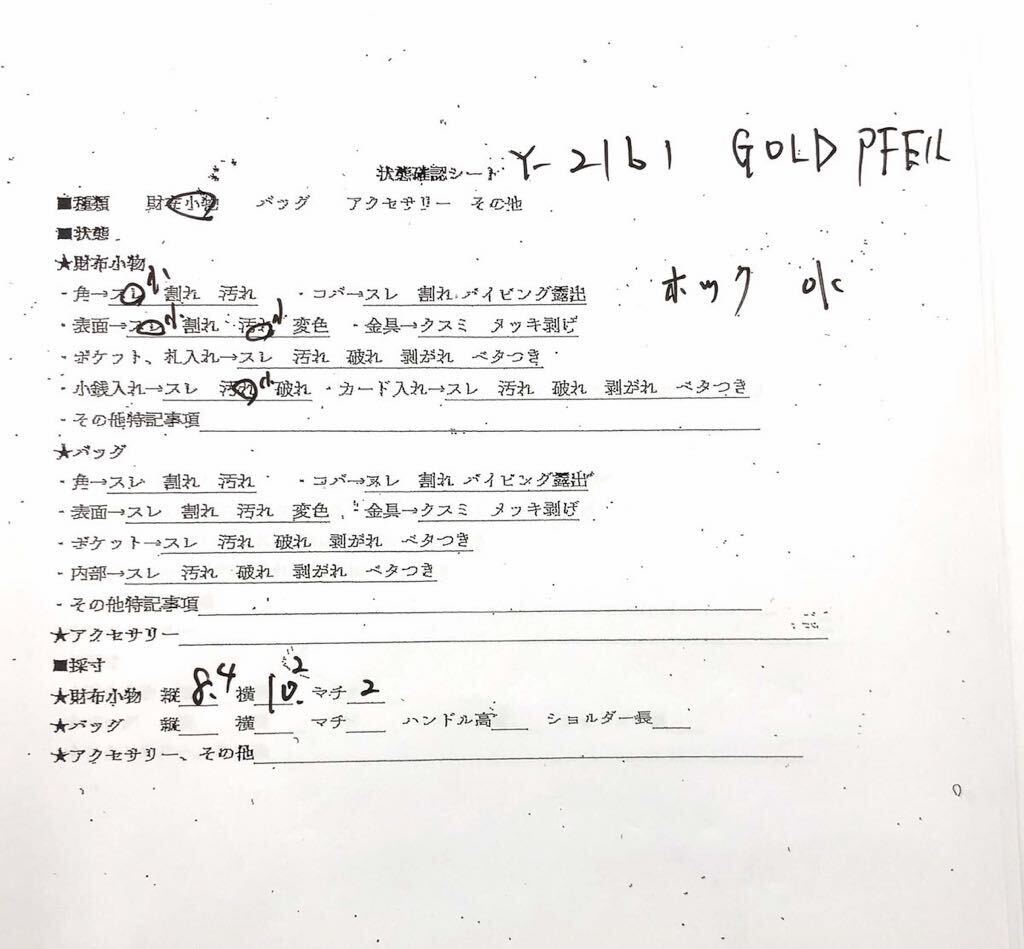 状態確認シート Y-2161 GOLD PFEIL
■種類 財布小物 バッグ アクセサリー その他
■状態
★財布小物
・角→スレ 小 割れ 汚れ ・コバ→スレ 割れ パイピング露出 ホック OK
・表面→スレ 小 割れ 汚れ 小 変色 ・金具→クスミ メッキ剥げ
・ポケット、札入れ→スレ 汚れ 破れ 剥がれ ベタつき
・小銭入れ→スレ 汚れ 小 破れ ・カード入れ→スレ 汚れ 破れ 剥がれ ベタつき
・その他特記事項
★バッグ
・角→スレ 割れ 汚れ ・コバ→スレ 割れ パイピング露出
・表面→スレ 割れ 汚れ 変色 ・金具→クスミ メッキ剥げ
・ポケット→スレ 汚れ 破れ 剥がれ ベタつき
・内部→スレ 汚れ 破れ 剥がれ ベタつき
・その他特記事項
★アクセサリー
■採寸
★財布小物 縦 8.4 横 10.2 マチ 2
★バッグ 縦 横 マチ ハンドル高 ショルダー長
★アクセサリー、その他